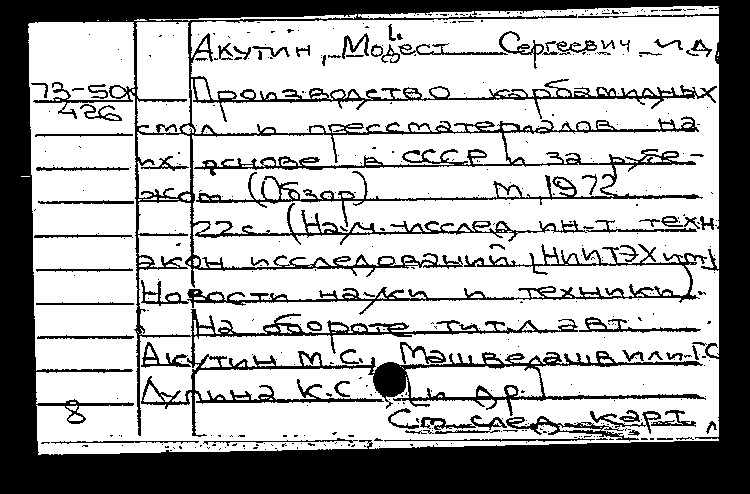 Акутин, Модест Сергеевич и др
73-50к Производство карбамидных
426
смол и прессматериалов на
их основе в СССР и за рубе-
жом (Обзор). М., 1972
22 с. (Науч.-исслед. ин-т техн.
экон исследований. [НИИТЭХим]
Новости науки и техники).
На обороте тит.л авт:
Акутин М.С., Машвелашвили Г.С
Лупина К.С [и др.]
8 См след карт